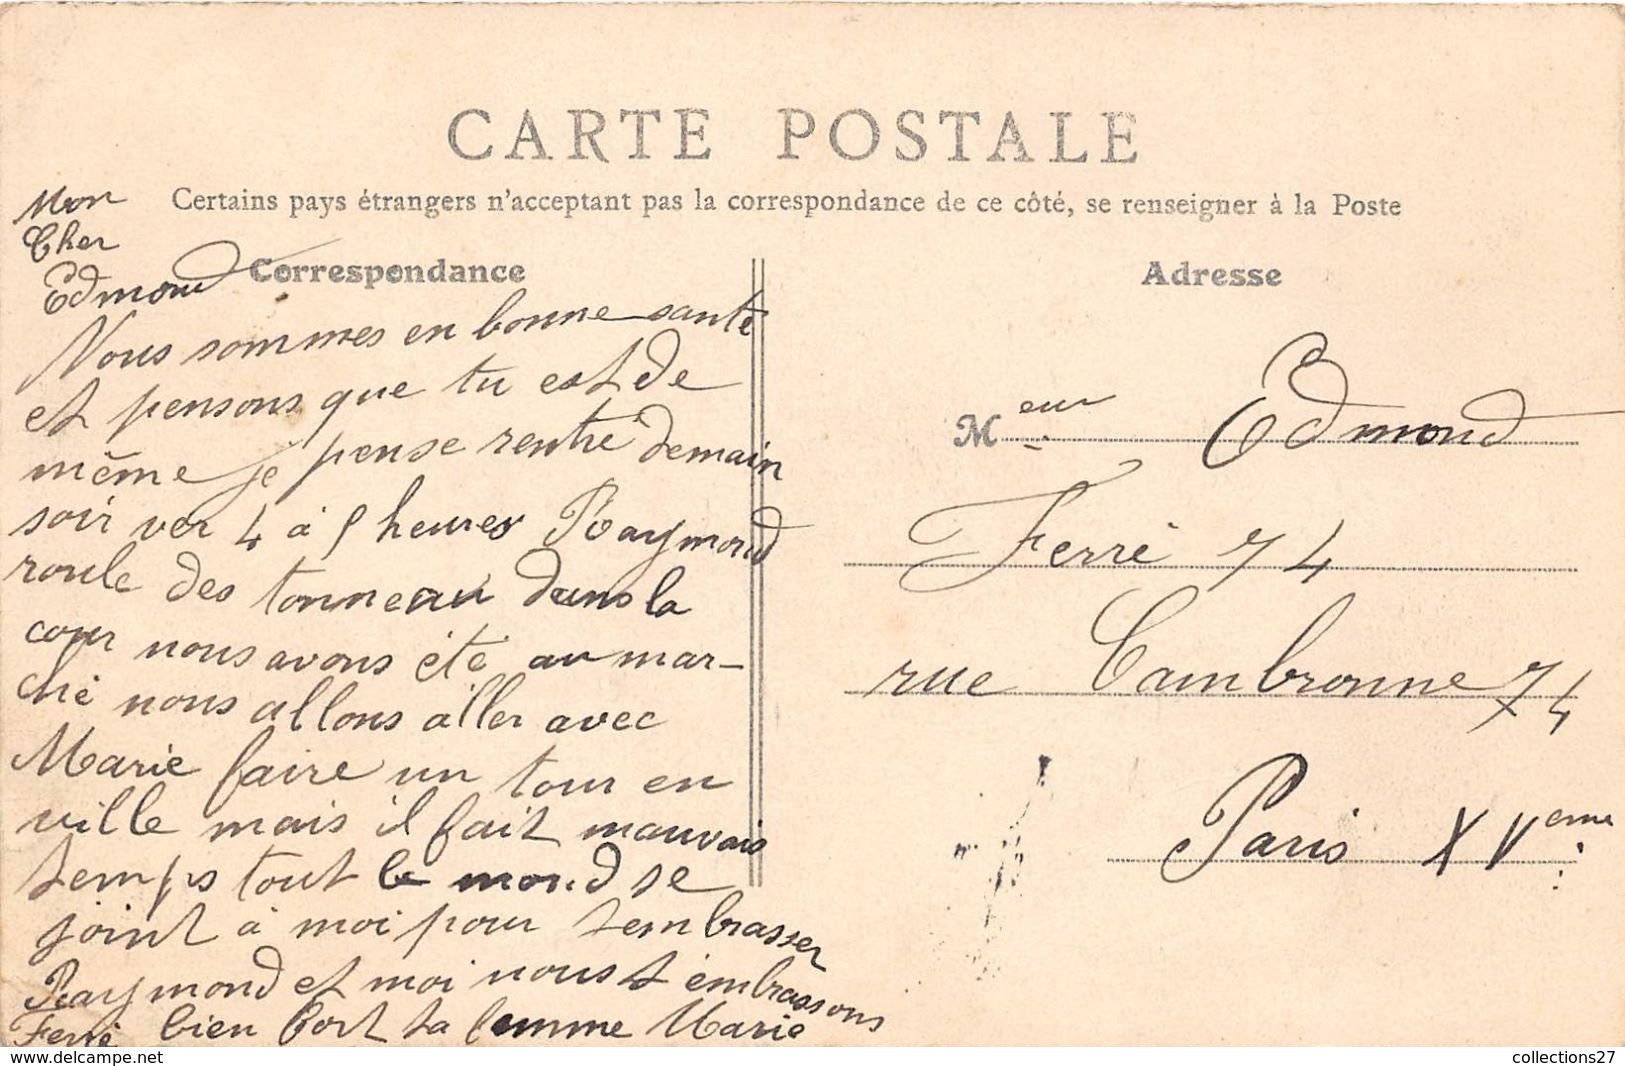 CARTE POSTALE
Certains pays étrangers n'acceptent pas la correspondance de ce côté, se renseigner à la Poste
Correspondance
Mon
Cher
Edmond
Nous sommes en bonne santé
et pensons que tu est de
même je pense rentré demain
soir ver 4 à 5 heures Raymond
roule des tonneau dans la
cour nous avons été au mar-
ché nous allons aller avec
Marie faire un tour en
ville mais il fait mauvais
temps tout le mond se
joint à moi pour tembrasser
Raymond et moi nous t'embrassons
bien fort ta femme Marie
Ferré
Adresse
Meur Edmond
Ferré 74
rue Cambronne 74
Paris XVeme
collections27